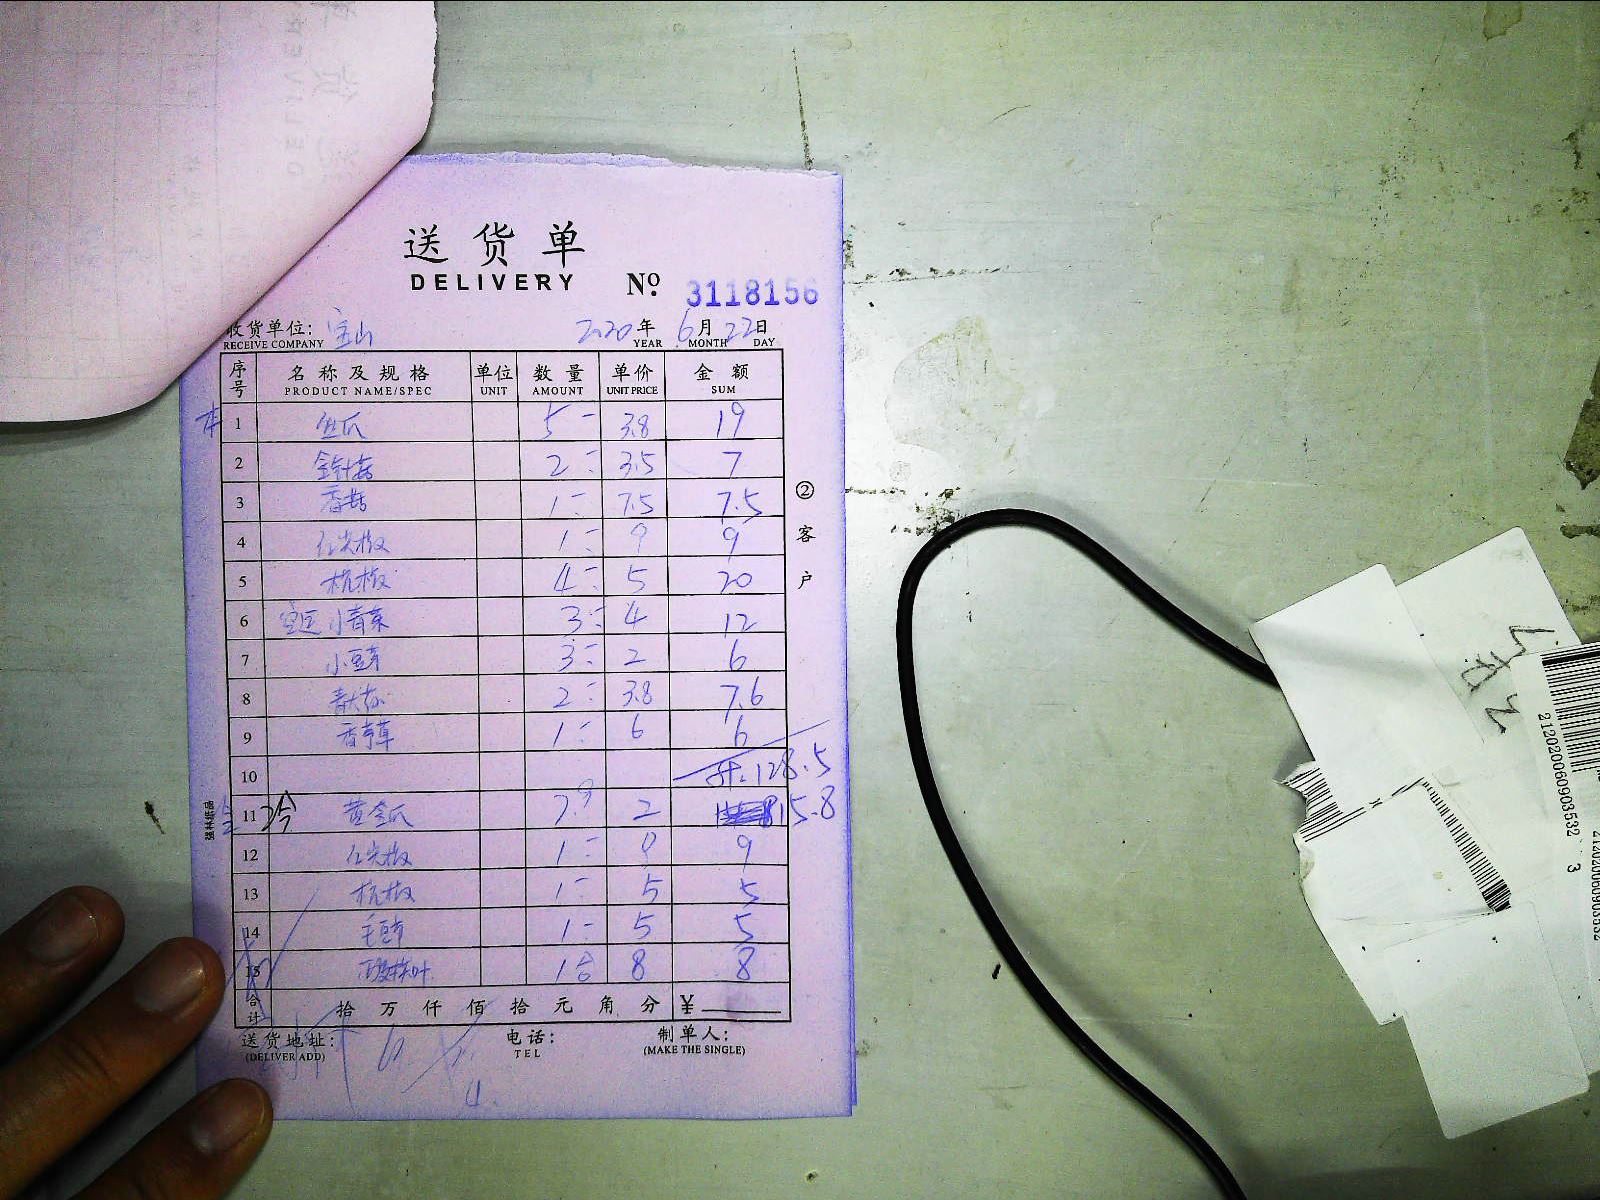 送货单
DELIVERY
No. 3118156
收货单位: 宝山 2020年 6月 22日
RECEIVE COMPANY YEAR MONTH DAY
序号 名称及规格 单位 数量 单价 金额
PRODUCT NAME/SPEC UNIT AMOUNT UNIT PRICE SUM
本 1 丝瓜 5- 3.8 19
2 金针菇 2- 3.5 7
3 香菇 1- 7.5 7.5
4 红尖椒 1- 9 9
5 杭椒 4- 5 20
6 宝运小青菜 3- 4 12
7 小豆芽 3- 2 6
8 2- 3.8 7.6
9 香茅草 1- 6 6
10 计: 128.5
11 黄金瓜 7.9 2 15.8
12 红尖椒 1- 9 9
13 杭椒 1- 5 5
14 1- 5 5
15 8 8
合计 拾 万 仟 佰 拾 元 角 分 ¥
送货地址: 电话: 制单人:
(DELIVER ADD) TEL (MAKE THE SINGLE)
② 客户
强林纸品
212020060903532 3